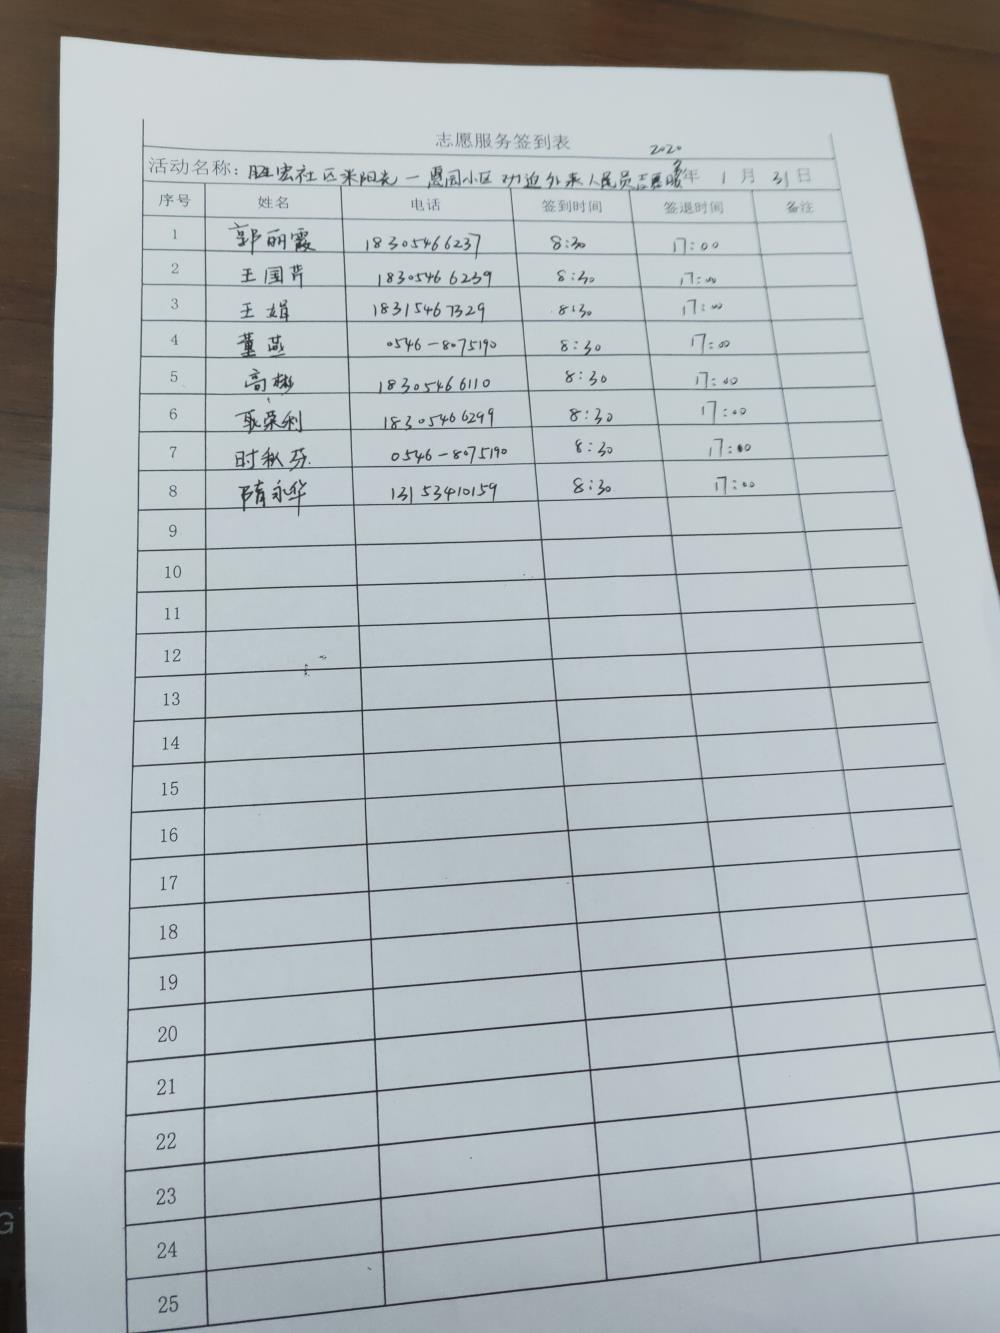 志愿服务签到表
2020
活动名称: 胜宏社区采阳光一惠园小区 外来人员志愿服务 年 1 月 31 日
序号 姓名 电话 签到时间 签退时间 备注
1 郭丽霞 18305466237 8:30 17:00
2 王国芹 18305466239 8:30 17:00
3 王娟 18315467329 8:30 17:00
4 董燕 0546-8075190 8:30 17:00
5 高彬 18305466110 8:30 17:00
6 耿荣利 18305466299 8:30 17:00
7 时秋芬 0546-8075190 8:30 17:00
8 隋永华 13153410159 8:30 17:00
9
10
11
12
13
14
15
16
17
18
19
20
21
22
23
24
25
G